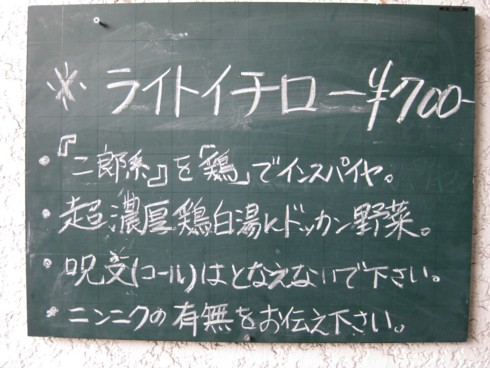 ※ ライトイチロー ¥700-
・『二郎系』を「鶏」でインスパイヤ。
・超濃厚鶏白湯にドッカン野菜。
・呪文(コール)はとなえないで下さい。
・ニンニクの有無をお伝え下さい。